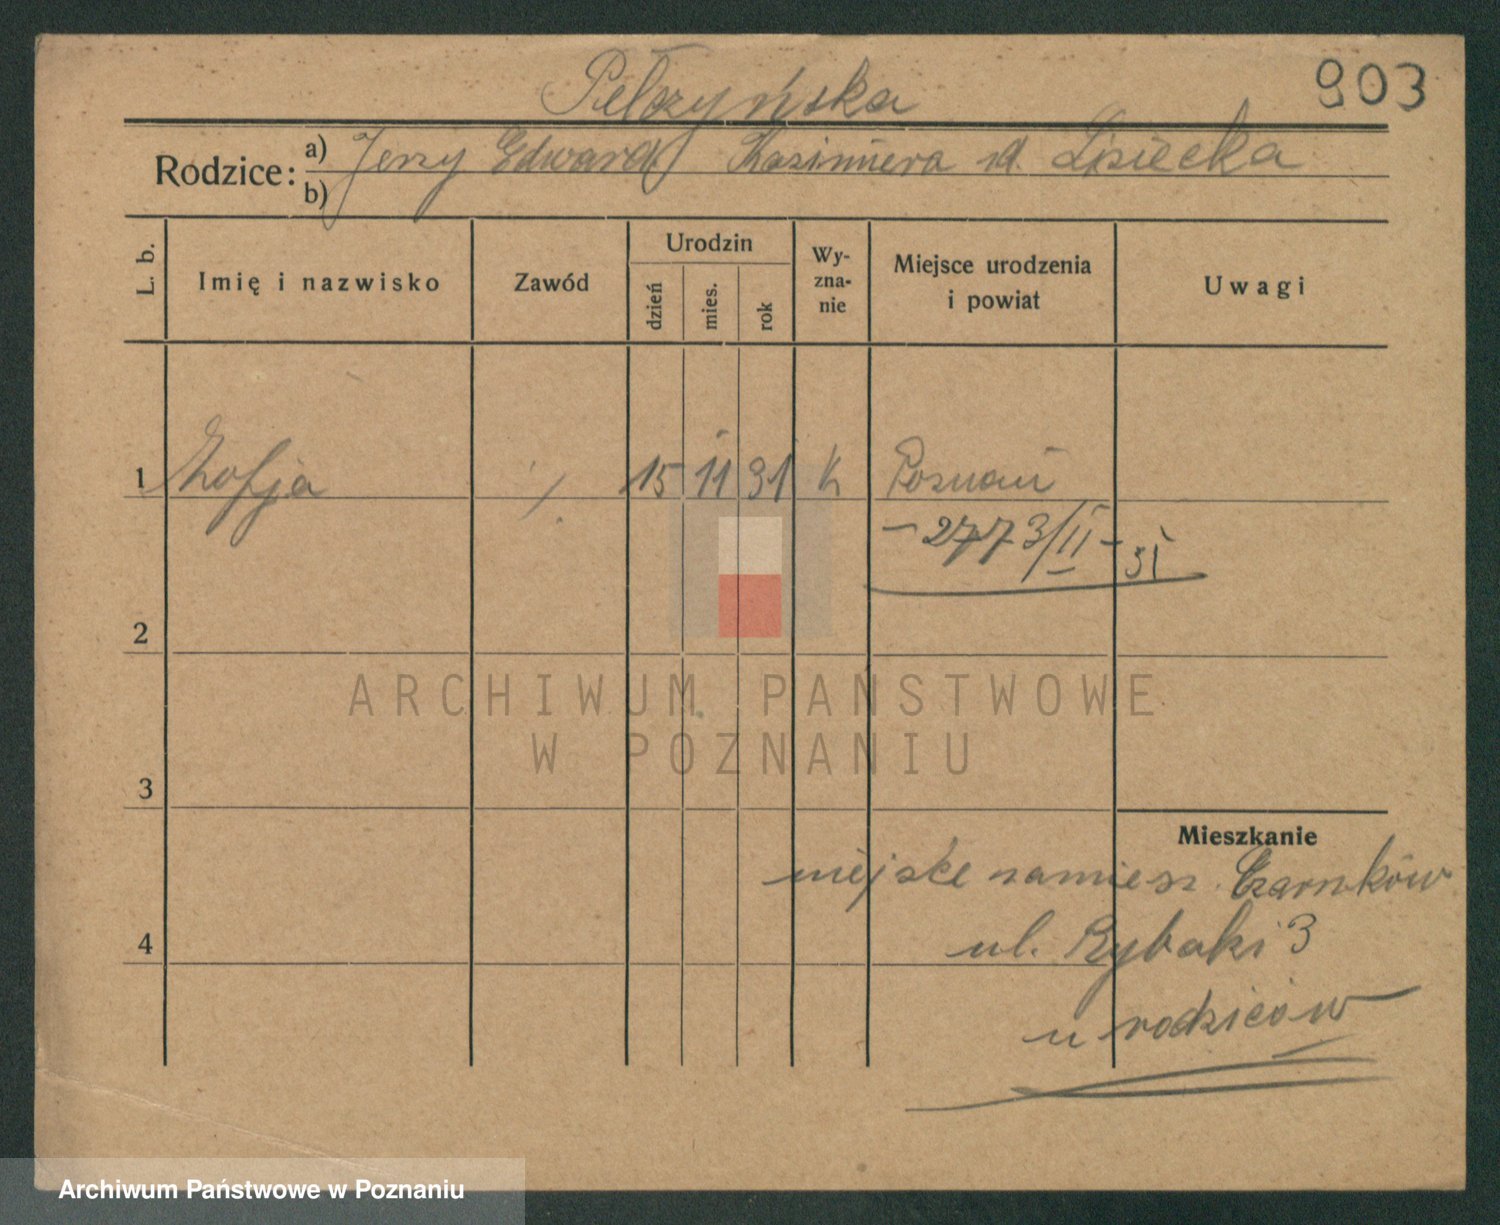 Pełczyńska
903
Rodzice: a) Jerzy Edward Kazimiera zd. Lisiecka
b)
L. b.
Imię i nazwisko
Zawód
Urodzin
dzień
mies.
rok
Wy-
zna-
nie
Miejsce urodzenia
i powiat
Uwagi
1 Zofja ./. 15 11 31 k Poznań
- 2773/II - 31
2
ARCHIWUM PAŃSTWOWE
W POZNANIU
3
Mieszkanie
miejsce zamiesz. Czarnków
ul. Rybaki 3
4
u rodziców
Archiwum Państwowe w Poznaniu